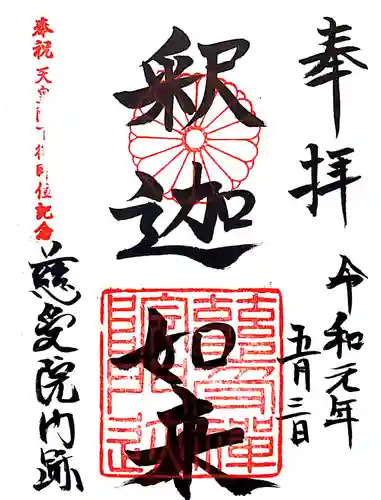 奉拝
令和元年
五月三日
釈迦
如来
奉祝 天皇陛下御即位記念
慈受院門跡